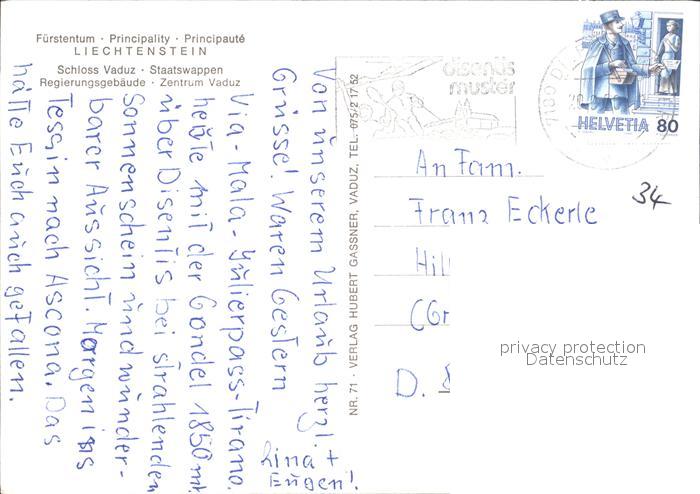 Fürstentum · Principality · Principauté
LIECHTENSTEIN
Schloss Vaduz · Staatswappen
Regierungsgebäude · Zentrum Vaduz
Von unserem Urlaub herzl.
Grüsse! Waren Gestern
Via-Mala-Jülierpass-Tirano.
heute mit der Gondel 1850 mtr
über Disentis bei strahlenden
Sonnenschein und wunder-
barer Aussicht. Morgen ins
Tessin nach Ascona. Das
hätte Euch auch gefallen.
Lina +
Eugen!
NR. 71 · VERLAG HUBERT GASSNER, VADUZ, TEL. 075/2 17 52
disentis
muster
7180 D
HELVETIA 80
An Fam.
Franz Eckerle
Hil
(Gr
D.
34
privacy protection
Datenschutz